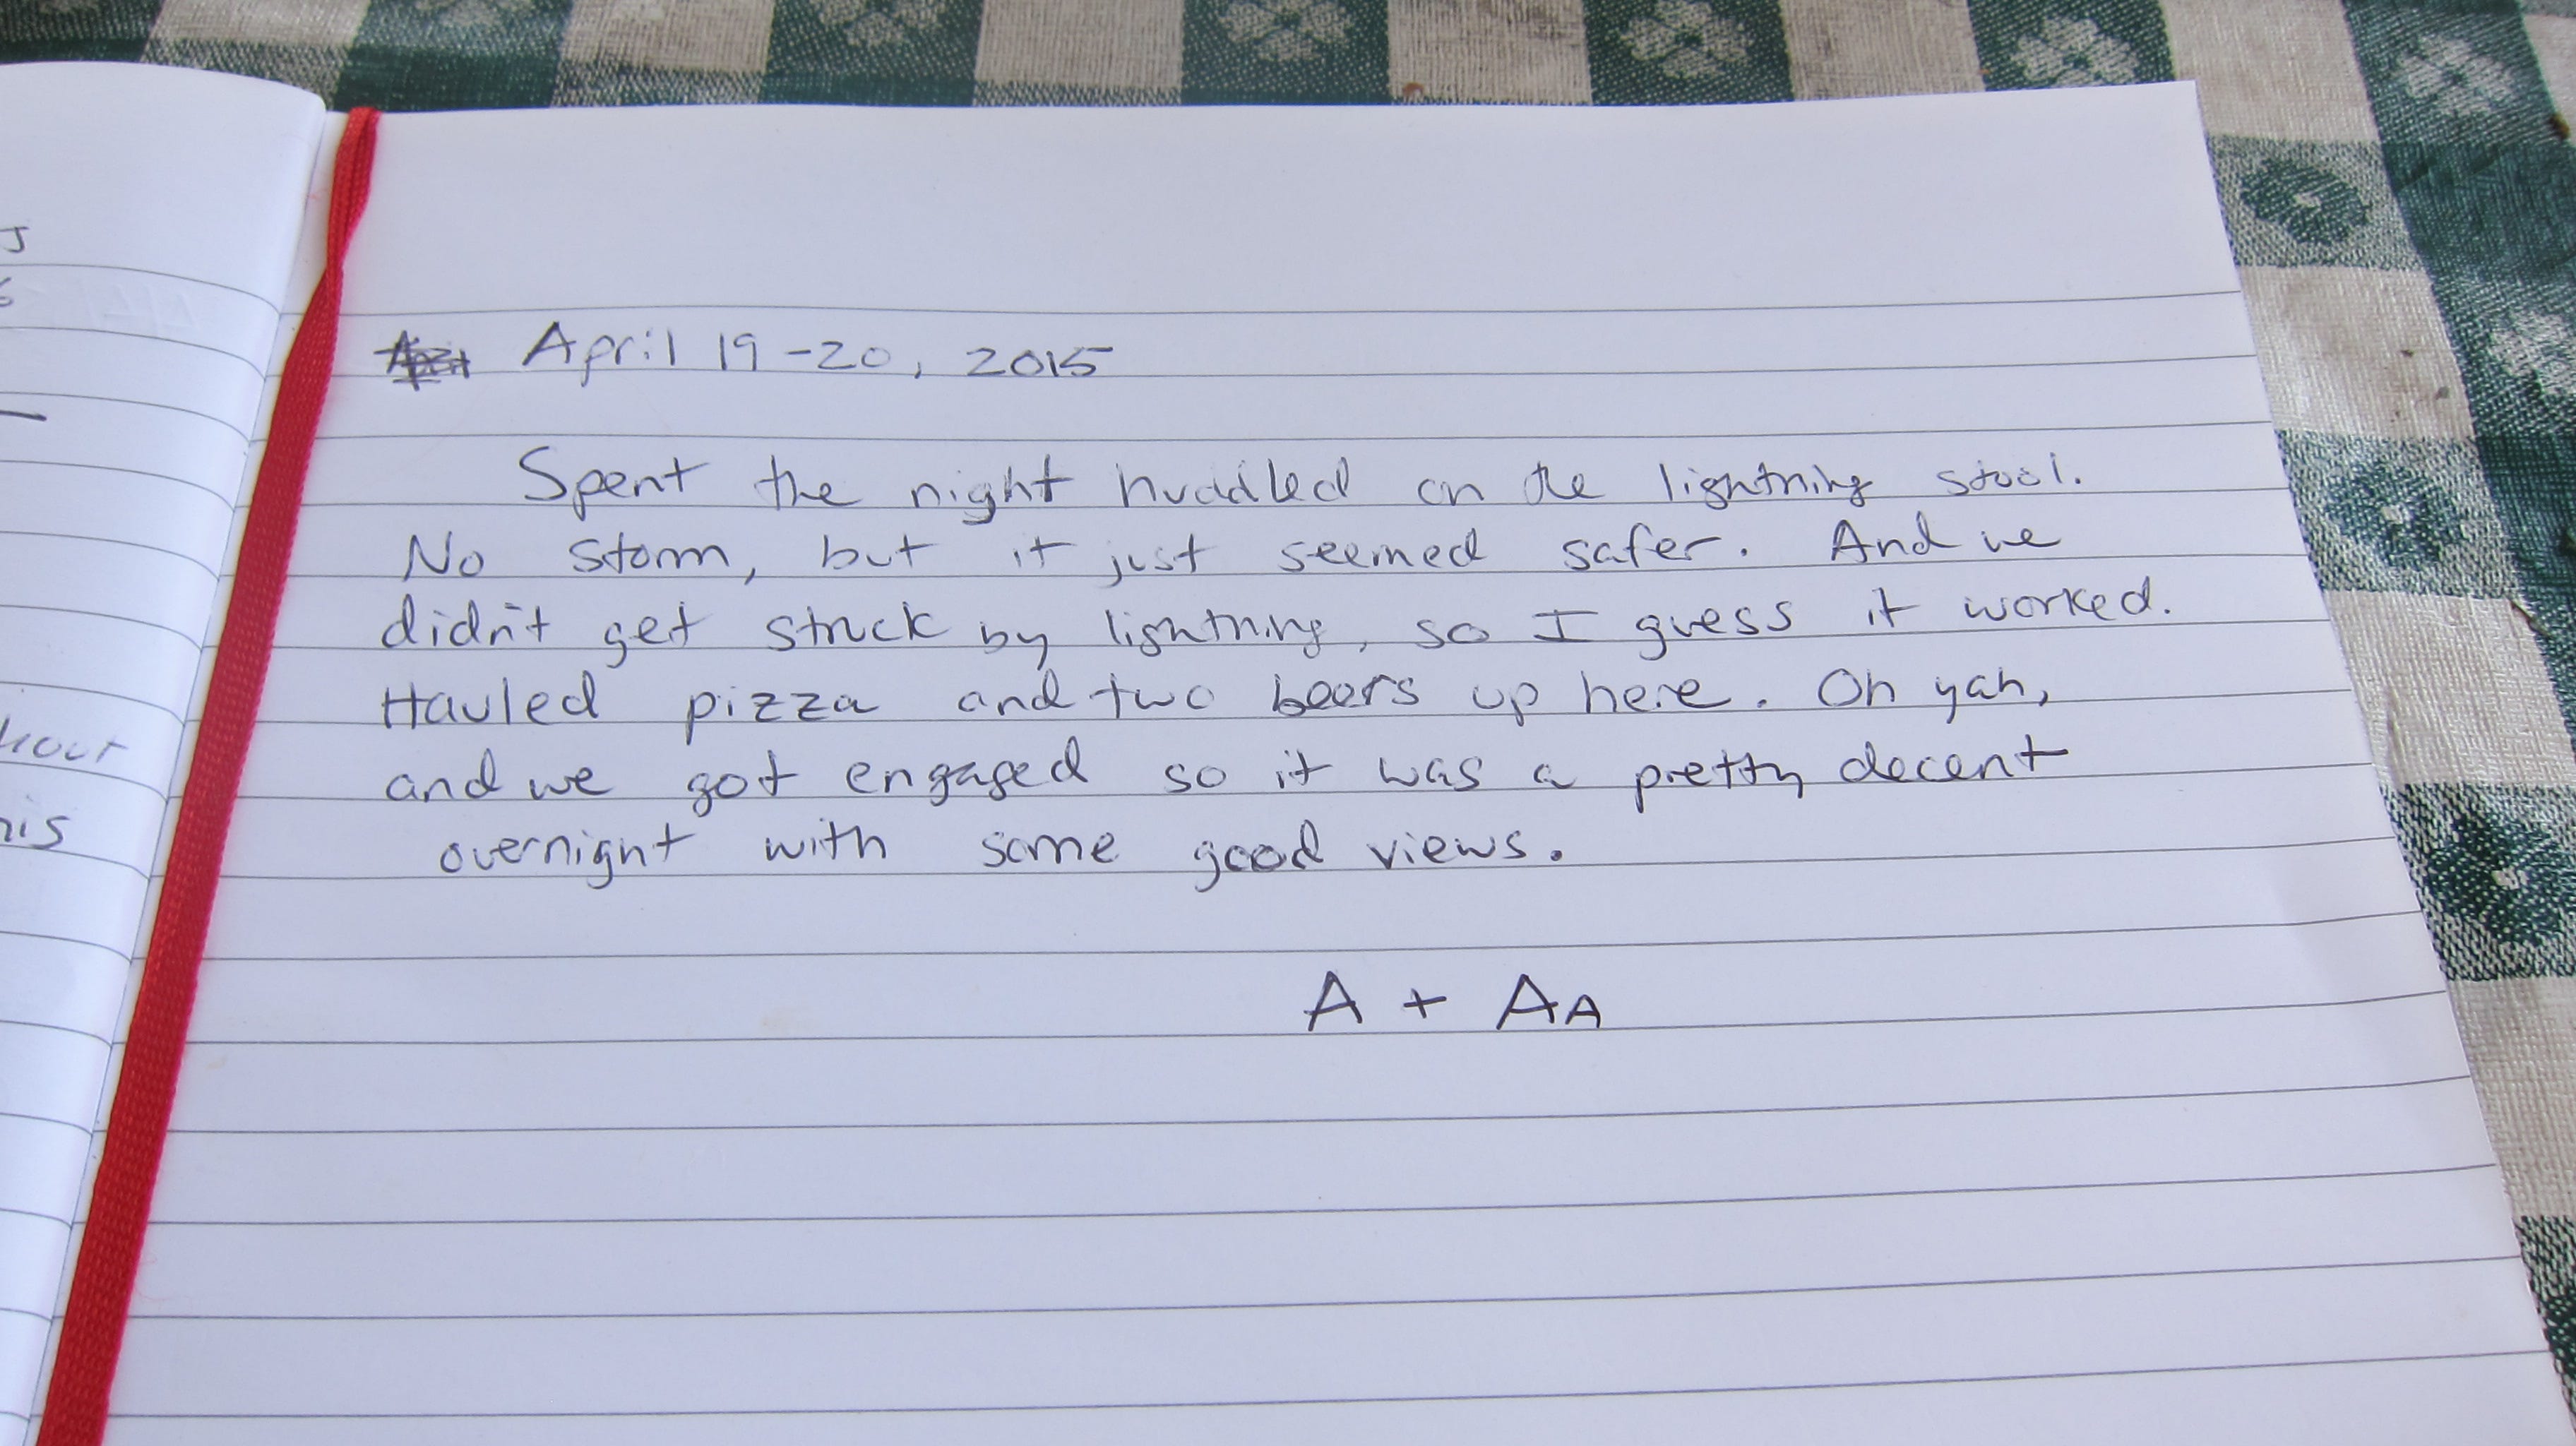 April 19-20, 2015
Spent the night huddled on the lightning stool.
No storm, but it just seemed safer. And we
didn't get struck by lightning, so I guess it worked.
Hauled pizza and two beers up here. Oh yah,
and we got engaged so it was a pretty decent
overnight with some good views.
A + AA